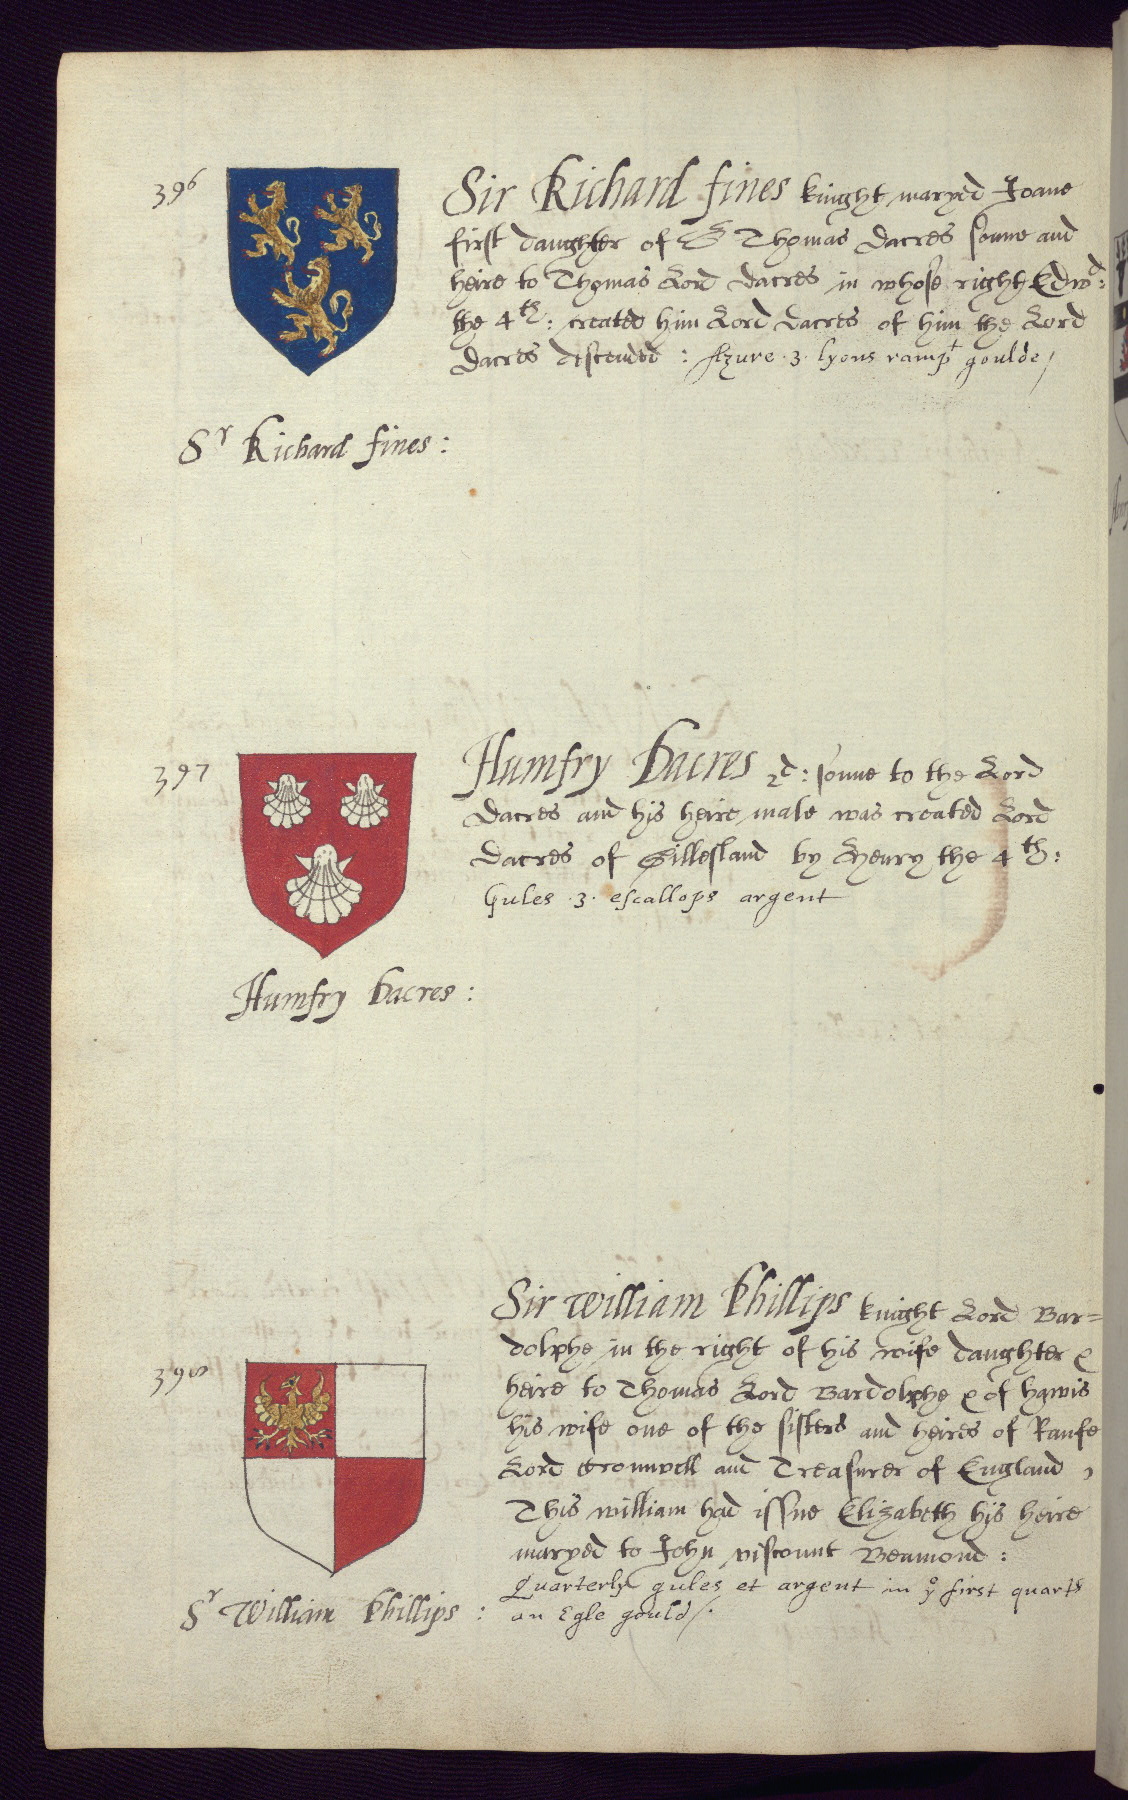 396
Sir Richard fines knight maryed Joane
first daughter of Sr Thomas Dacres sonne and
heire to Thomas Lord Dacres in whose right Edwd:
the 4th: created him Lord Dacres of him the Lord
Dacres descended : Azure .3. lyons rampt goulde /
Sr Richard fines :
397
Humfry Dacres 2d: sonne to the Lord
Dacres and his heire male was created Lord
Dacres of Gillesland by Henry the 4th:
Gules .3. escallops argent
Humfry Dacres :
398
Sir William Phillips knight Lord Bar=
dolphe in the right of his wife daughter &
heire to Thomas Lord Bardolphe & of hawis
his wife one of the sisters and heires of Raufe
Lord Cromwell and Treasurer of England ,
This william had issue Elizabeth his heire
maryed to John viscount Beumond :
Quarterly gules et argent in ye first quarter
an Egle gould /.
Sr William Phillips :